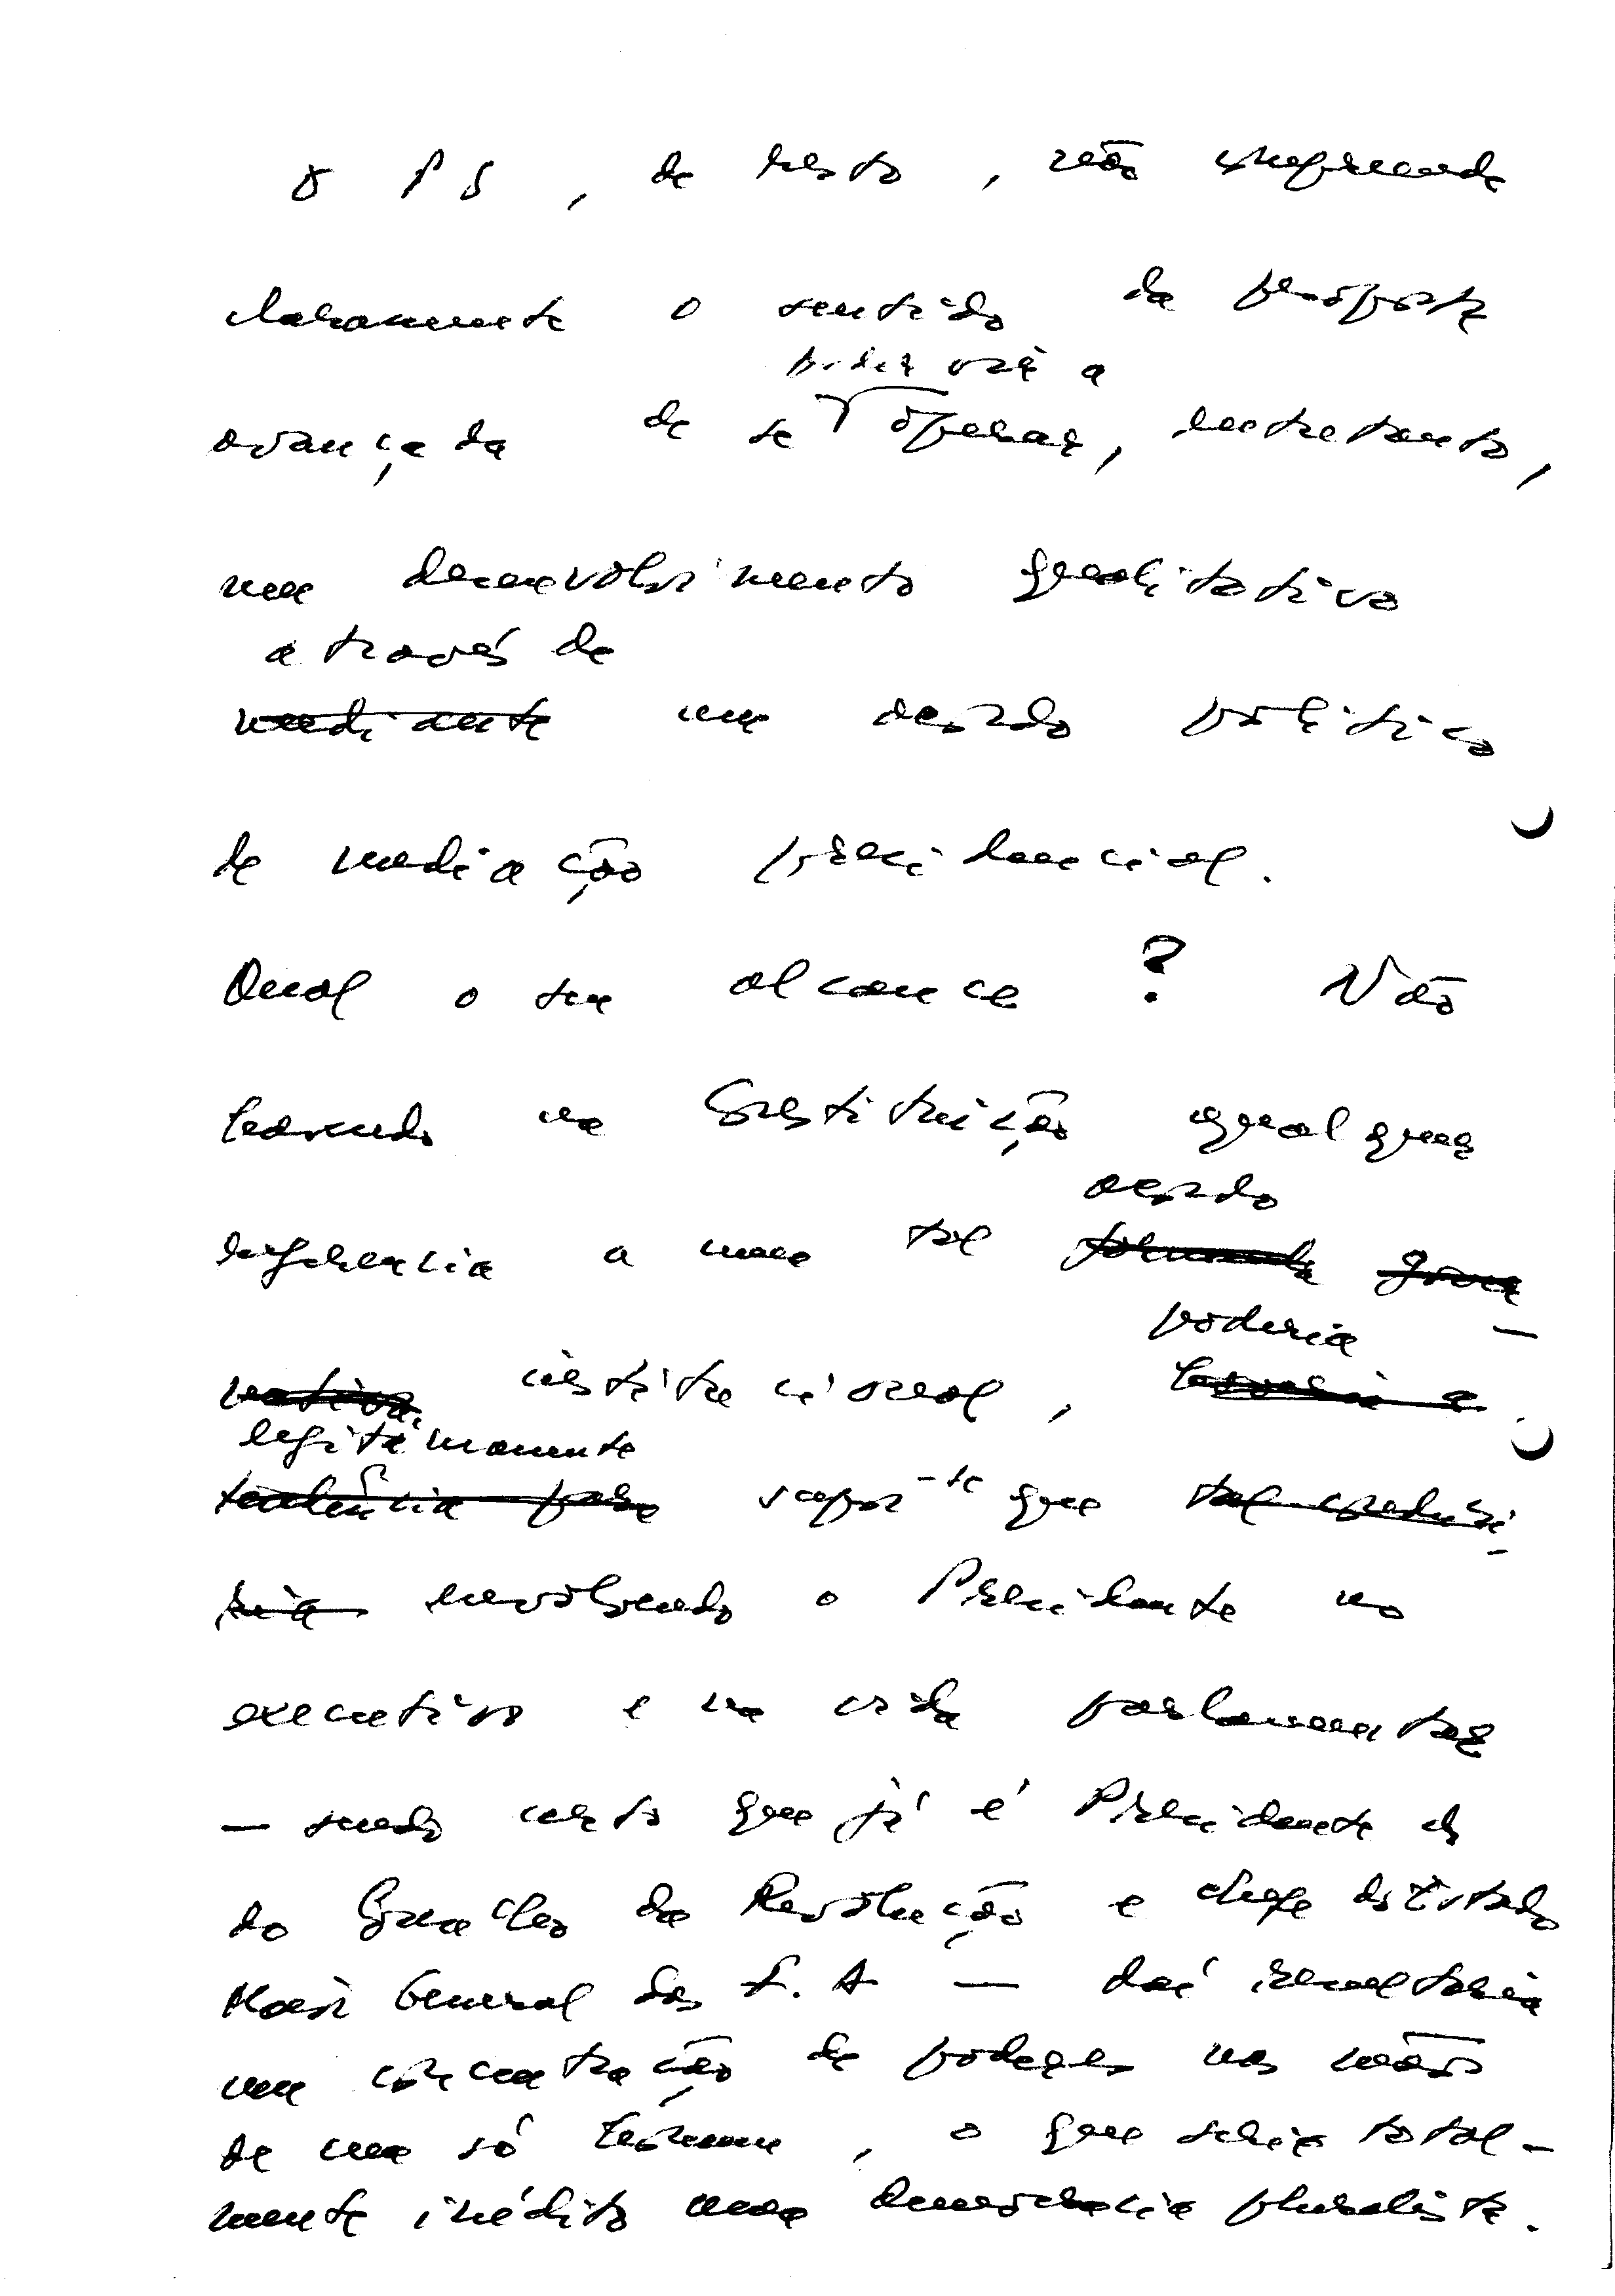 O PS, de resto, não compreende
claramente o sentido da proposta
poder vir a
avançada de se operar, entretanto,
um desenvolvimento qualitativo
através de
mediante um acordo político
de mediação presidencial.
Qual o seu alcance? Não
havendo na Constituição qualquer
acordo
referência a um tal fórmula gover
poderia -
nativa institucional,
legitimamente
tendência para supor-se que tal conduzi-
ria envolvendo o Presidente no
executivo e na vida parlamentar
— sendo certo que já é Presidente
do Conselho da Revolução e chefe do Estado
Maior General das F. A — daí resultaria
uma concentração de poderes nas mãos
de um só homem, o que seria total-
mente inédito numa democracia pluralista.